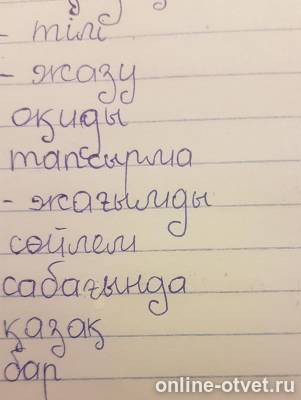 - тілі
- жазу
оқиды
тапсырма
- жағымды
сөйлем
сабағында
қазақ
бар
online-otvet.ru